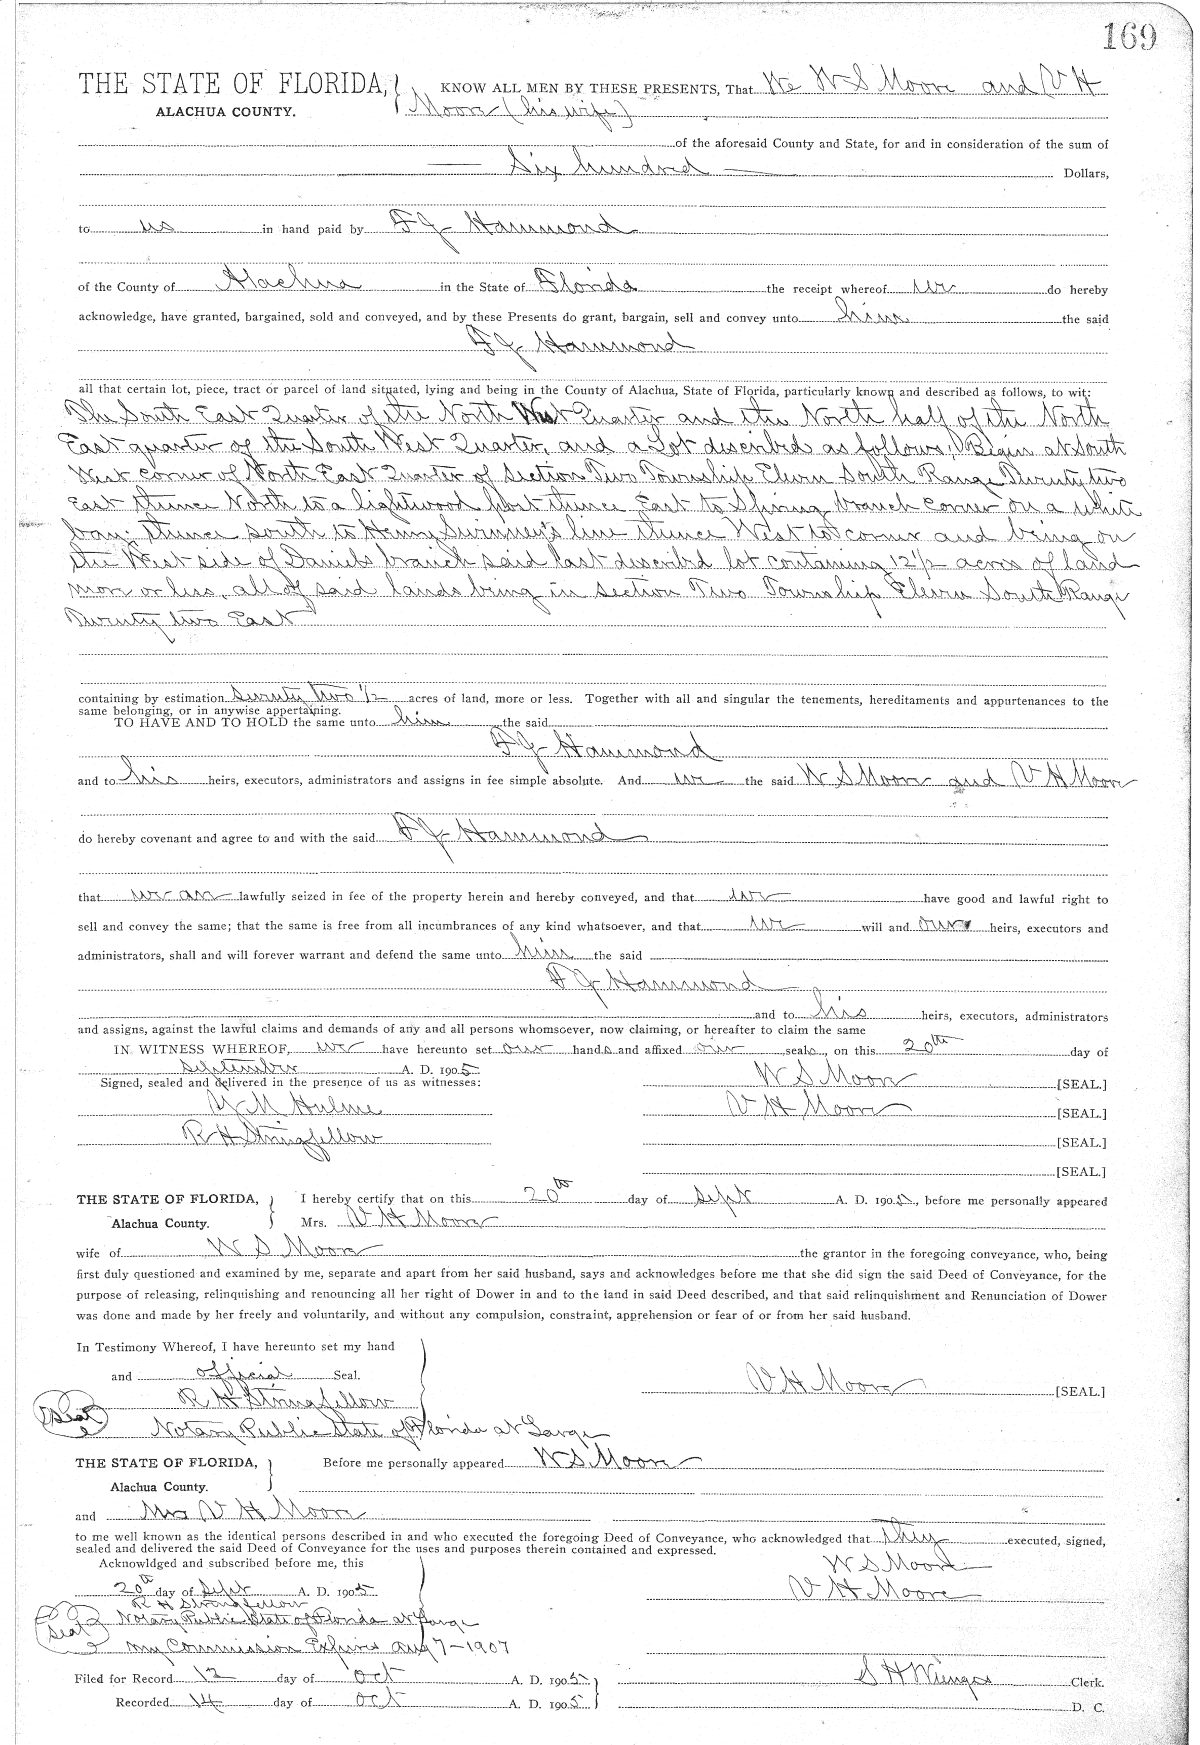 169
THE STATE OF FLORIDA, KNOW ALL MEN BY THESE PRESENTS, That We W S Moore and V H
ALACHUA COUNTY. Moore (his wife)
of the aforesaid County and State, for and in consideration of the sum of
Six hundred Dollars,
to us in hand paid by F J Hammond
of the County of Alachua in the State of Florida the receipt whereof we do hereby
acknowledge, have granted, bargained, sold and conveyed, and by these Presents do grant, bargain, sell and convey unto him the said
F J Hammond
all that certain lot, piece, tract or parcel of land situated, lying and being in the County of Alachua, State of Florida, particularly known and described as follows, to wit:
The South East Quarter of the North West Quarter and the North half of the North
East quarter of the South West Quarter, and a Lot described as follows: Begin at South
West corner of North East Quarter of Section Two Township Eleven South Range Twenty two
East thence North to a lightwood post thence East to Spring branch corner on a white
bay, thence south to Henry Swinney's line thence West to corner and being on
the West side of Daniels branch said last described lot containing 12 1/2 acres of land
more or less, all of said lands being in section Two Township Eleven South Range
Twenty two East
containing by estimation seventy two 1/2 acres of land, more or less. Together with all and singular the tenements, hereditaments and appurtenances to the
same belonging, or in anywise appertaining.
TO HAVE AND TO HOLD the same unto him the said
F J Hammond
and to his heirs, executors, administrators and assigns in fee simple absolute. And we the said W S Moore and V H Moore
do hereby covenant and agree to and with the said F J Hammond
that we are lawfully seized in fee of the property herein and hereby conveyed, and that we have good and lawful right to
sell and convey the same; that the same is free from all incumbrances of any kind whatsoever, and that we will and our heirs, executors and
administrators, shall and will forever warrant and defend the same unto him the said
F J Hammond
and to his heirs, executors, administrators
and assigns, against the lawful claims and demands of any and all persons whomsoever, now claiming, or hereafter to claim the same
IN WITNESS WHEREOF, we have hereunto set our hands and affixed our seals, on this 20th day of
September A. D. 1905 W S Moore [SEAL.]
Signed, sealed and delivered in the presence of us as witnesses:
M Hulme V H Moore [SEAL.]
R H Stringfellow [SEAL.]
[SEAL.]
THE STATE OF FLORIDA, I hereby certify that on this 20th day of Sept A. D. 1905, before me personally appeared
Alachua County. Mrs. V H Moore
wife of W S Moore the grantor in the foregoing conveyance, who, being
first duly questioned and examined by me, separate and apart from her said husband, says and acknowledges before me that she did sign the said Deed of Conveyance, for the
purpose of releasing, relinquishing and renouncing all her right of Dower in and to the land in said Deed described, and that said relinquishment and Renunciation of Dower
was done and made by her freely and voluntarily, and without any compulsion, constraint, apprehension or fear of or from her said husband.
In Testimony Whereof, I have hereunto set my hand
and official Seal. V H Moore [SEAL.]
R H Stringfellow
Seal Notary Public State of Florida at Large
THE STATE OF FLORIDA, Before me personally appeared W S Moore
Alachua County.
and Mrs V H Moore
to me well known as the identical persons described in and who executed the foregoing Deed of Conveyance, who acknowledged that they executed, signed,
sealed and delivered the said Deed of Conveyance for the uses and purposes therein contained and expressed.
Acknowldged and subscribed before me, this W S Moore
20th day of Sept A. D. 1905 V H Moore
R H Stringfellow
Seal Notary Public State of Florida at Large
My Commission Expires Aug 7-1907
Filed for Record 12 day of Oct A. D. 1905 S H Wienges Clerk.
Recorded 14 day of Oct A. D. 1905 D. C.